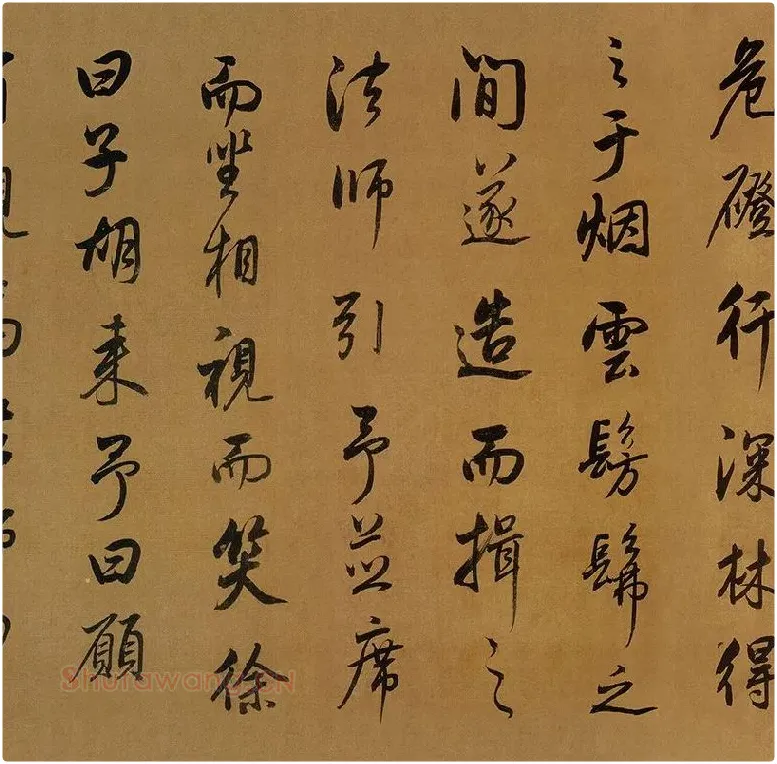 危磴行深林得
之于烟雲髣髴之
間遂造而揖之
法師引予並席
而坐相視而笑徐
曰子胡来予曰願